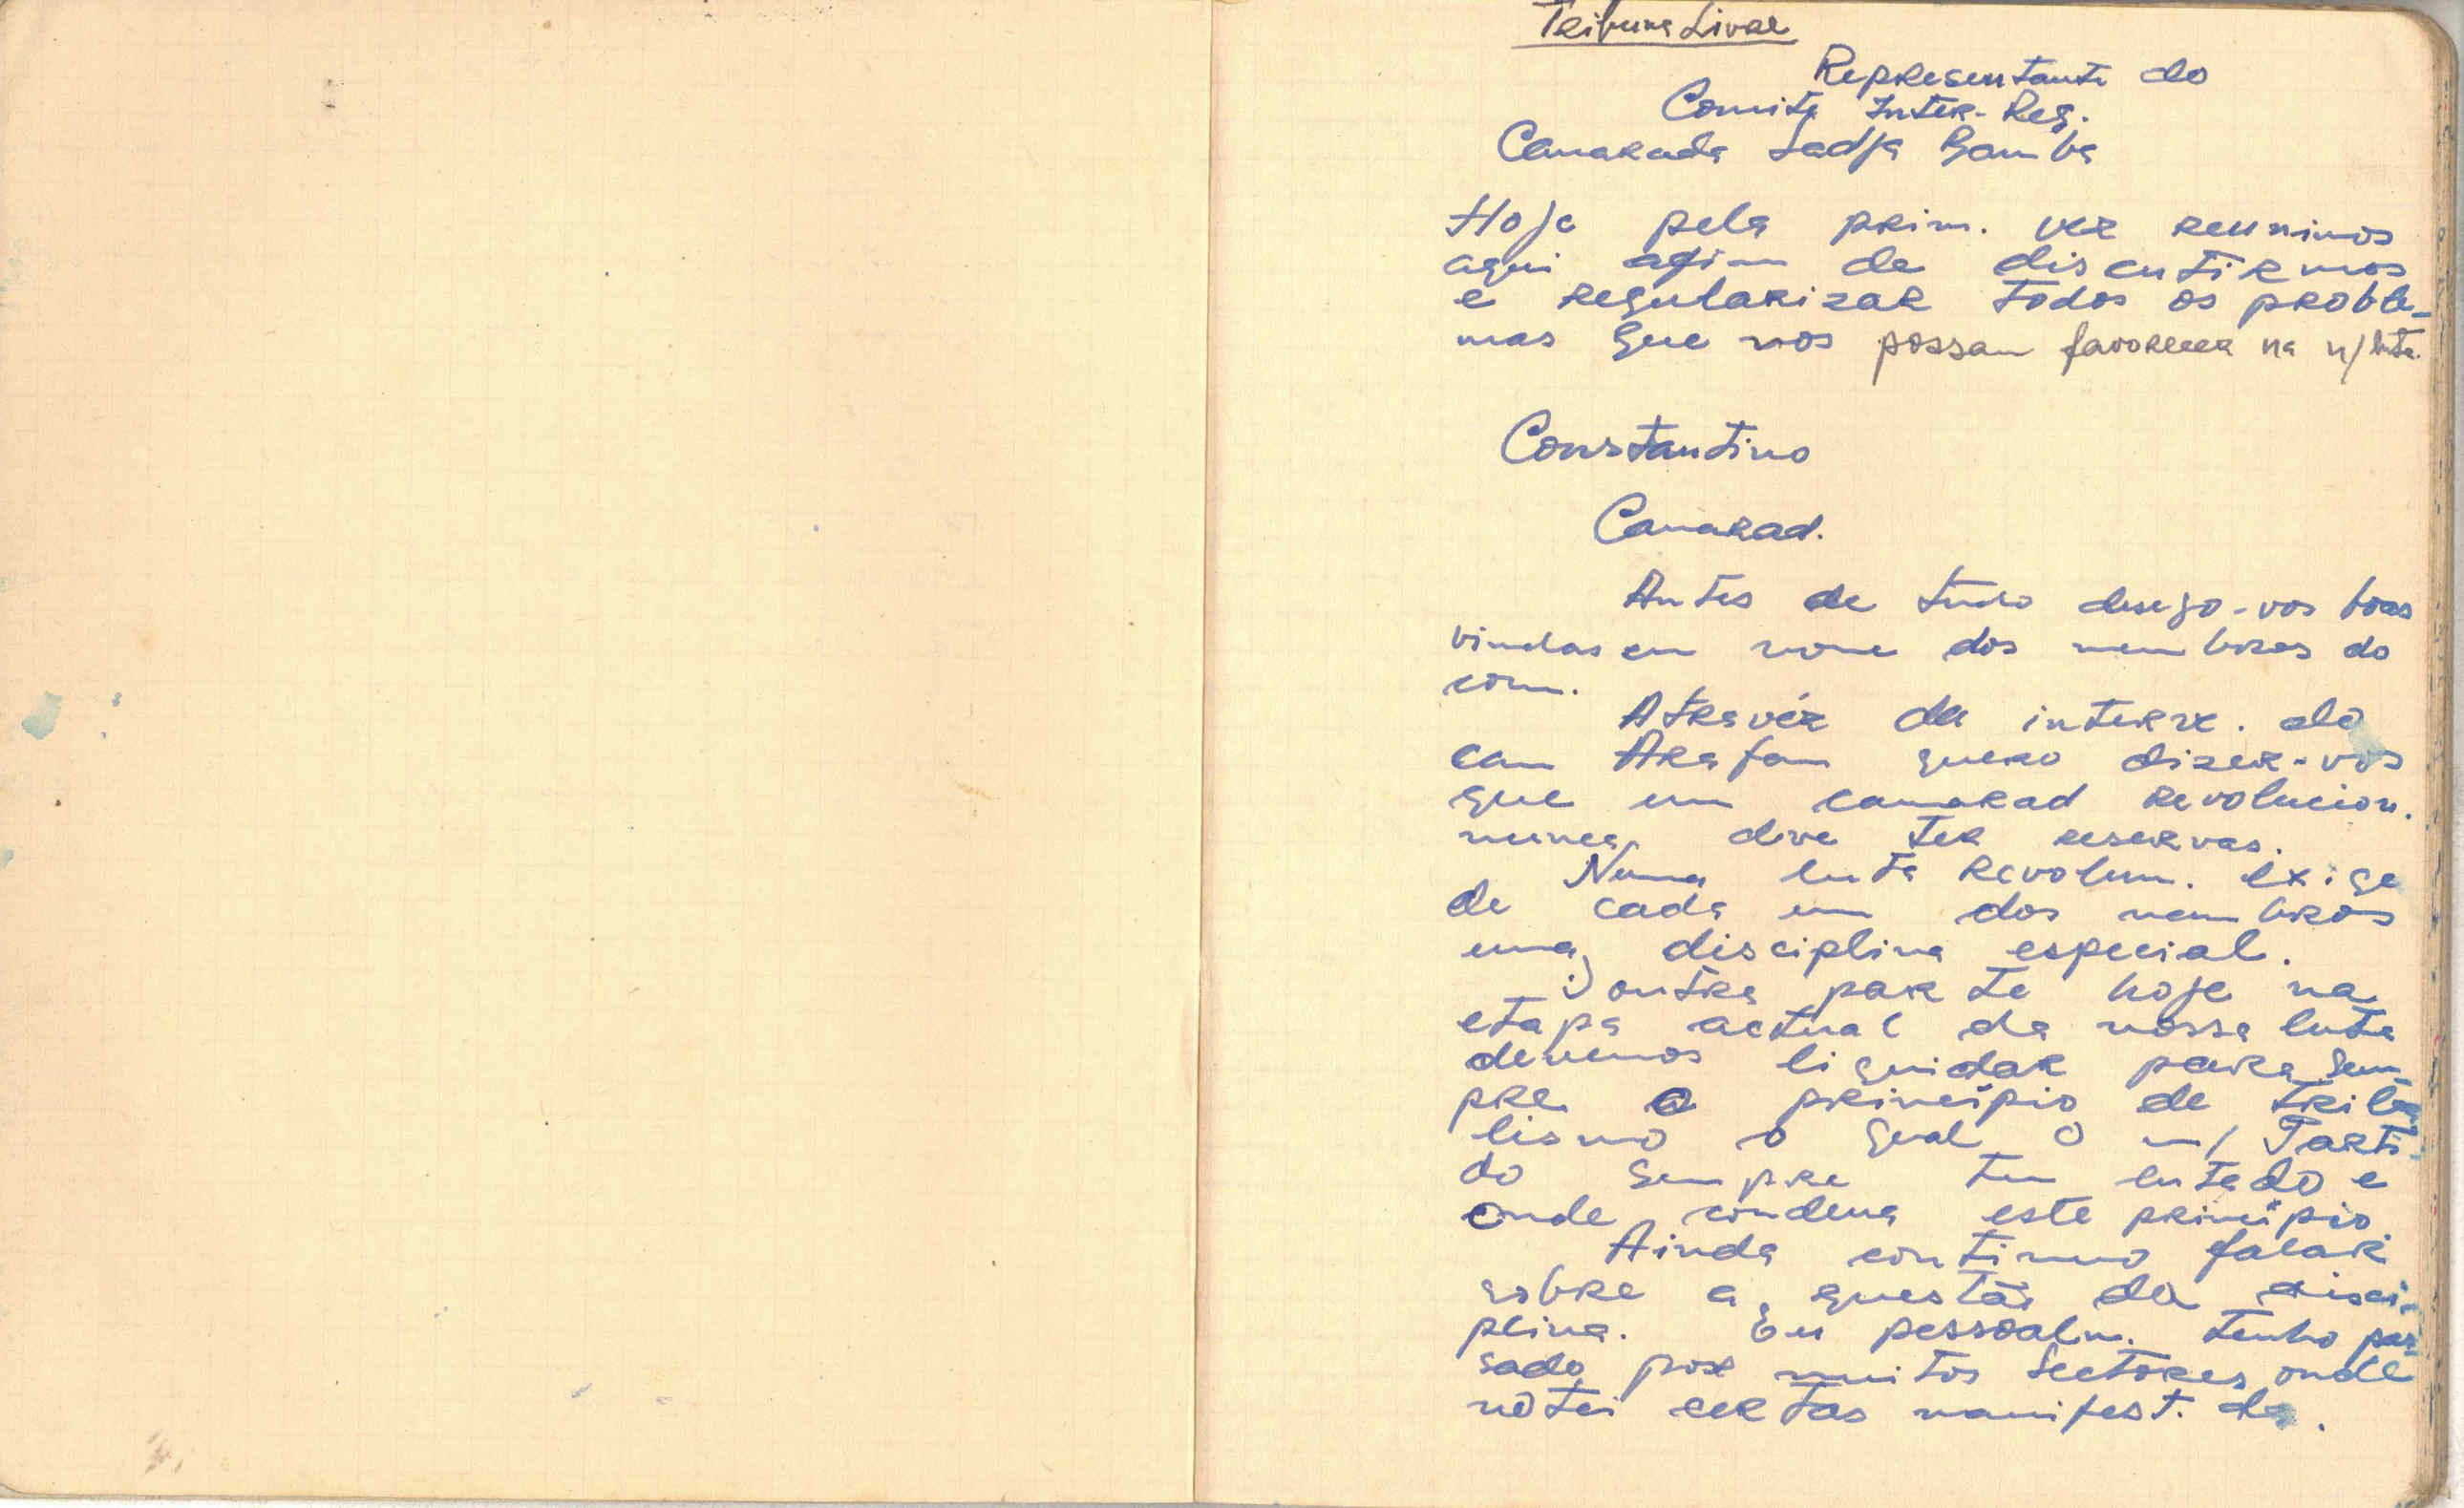 Tribuna Livre
Representante do
Comite Inter-Reg.
Camarada Ladja Bamba
Hoje pela prim. vez reunimos
aqui afim de discutirmos
e regularizar todos os proble-
mas que nos possam favorecer na n/luta.
Constantino
Camarad.
Antes de tudo desejo-vos boas
vindas em nome dos membros do
com.
Atravéz da interv. do
cam Arafam quero dizer-vos
que um camarad revolucion.
nunca deve ter reservas.
Numa luta Revolum. exige
de cada um dos membros
uma disciplina especial.
Doutra parte hoje na
etapa actual da nossa luta
devemos liquidar para sem-
pre o princípio de triba
lismo o qual o n/ Parti-
do sempre tem lutado e
onde condena este princípio.
Ainda continuo falar
sobre a questão da disci-
plina. Eu pessoalm. tenho pas-
sado por muitos sectores onde
notei certas manifest. de.